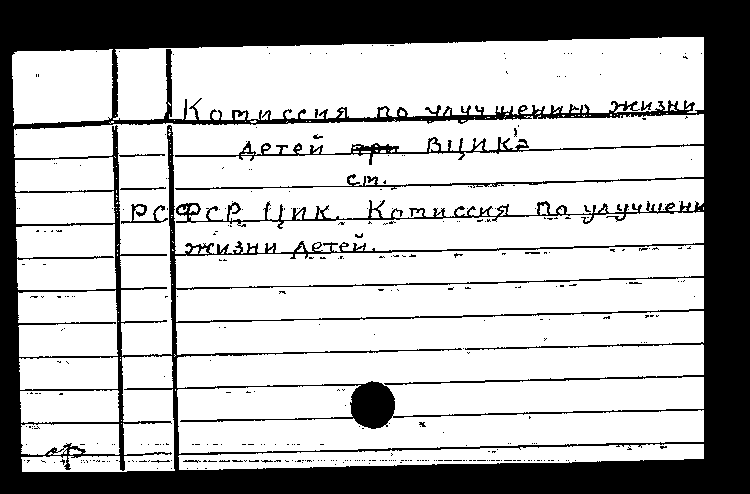 Комиссия по улучшению жизни
детей при ВЦИК'а
см.
РСФСР. ЦИК. Комиссия по улучшени
жизни детей.